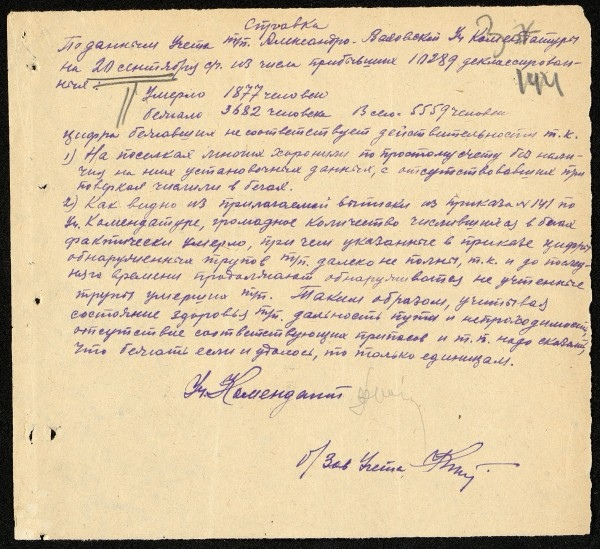 Справка
По данным Учета т/п. Александро-Ваховской Уч. Комендатуры
на 20 сентября с/г. из числа прибывших 10289 деклассирован-
ных:
144
Умерло 1877 человек
Бежало 3682 человека Всего- 5559 человек
Цифра бежавших не соответствует действительности т.к.
1) На поселках многих хоронили по простому счету без нали-
чия на них установочных данных, а отсутствовавших при
поверках числили в бегах.
2) Как видно из прилагаемой выписки из приказа № 141 по
Уч. Комендатуре, громадное количество числившихся в бегах
фактически умерло, при чем указанные в приказе цифры
обнаруженных трупов т/п. далеко не полны, т.к. и до послед-
него времени продолжают обнаруживаться не учтенные
трупы умерших т/п. Таким образом, учитывая
состояние здоровья т/п. дальность пути и непроходимость,
отсутствие соответствующих припасов и т.п. надо сказать,
что бежать если и удалось, то только единицам.
Уч. Комендант
о/ Зав Учета